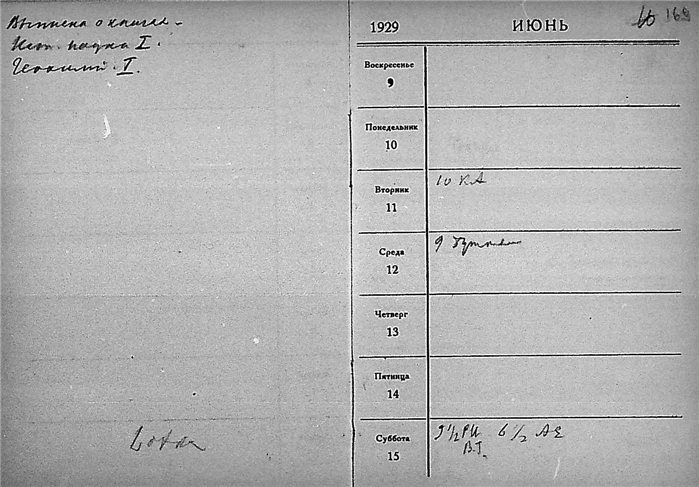 Выписка о книгах –
I.
I.
1929 ИЮНЬ 169
Воскресенье
9
Понедельник
10
Вторник
11
10 КА
Среда
12
9
Четверг
13
Пятница
14
Суббота
15
9 1/2 РИ 6 1/2 АЕ
В.Г.